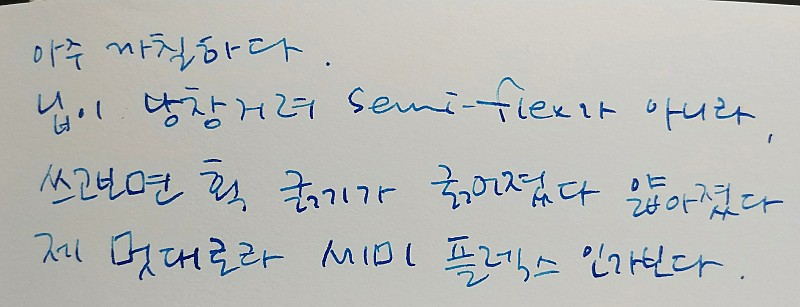 아주 까칠하다.
닙이 낭창거려 semi-flex가 아니라,
쓰고보면 획 굵기가 굵어졌다 얇아졌다
제 멋대로라 세미 플렉스 인가보다.